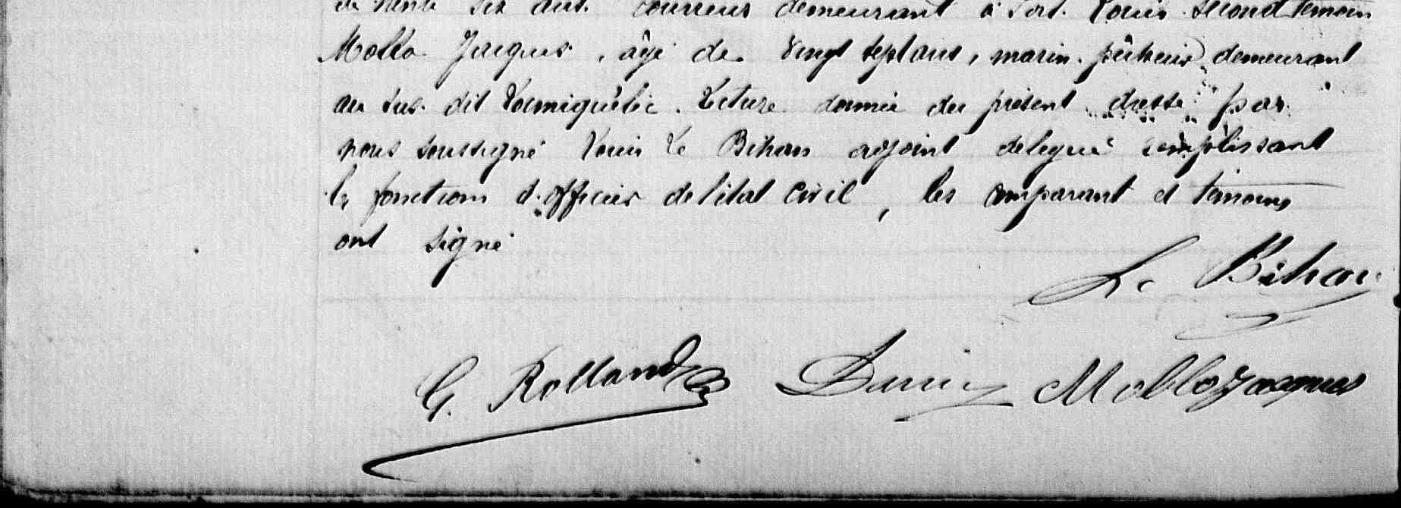 de trente six ans. courreur demeurant à Port. Louis second temoin
Mollo Jacques, âgé de. vingt sept ans, marin. pêcheur, demeurant
au sus. dit Locmiquélic. Lecture donnée du présent dressé par
nous soussigné Louis Le Bihan adjoint delegué remplissant
les fonctions d'officier de l'état civil, les comparant et témoins
ont signé
Le Bihan
G. Rolland Mollo Jacques